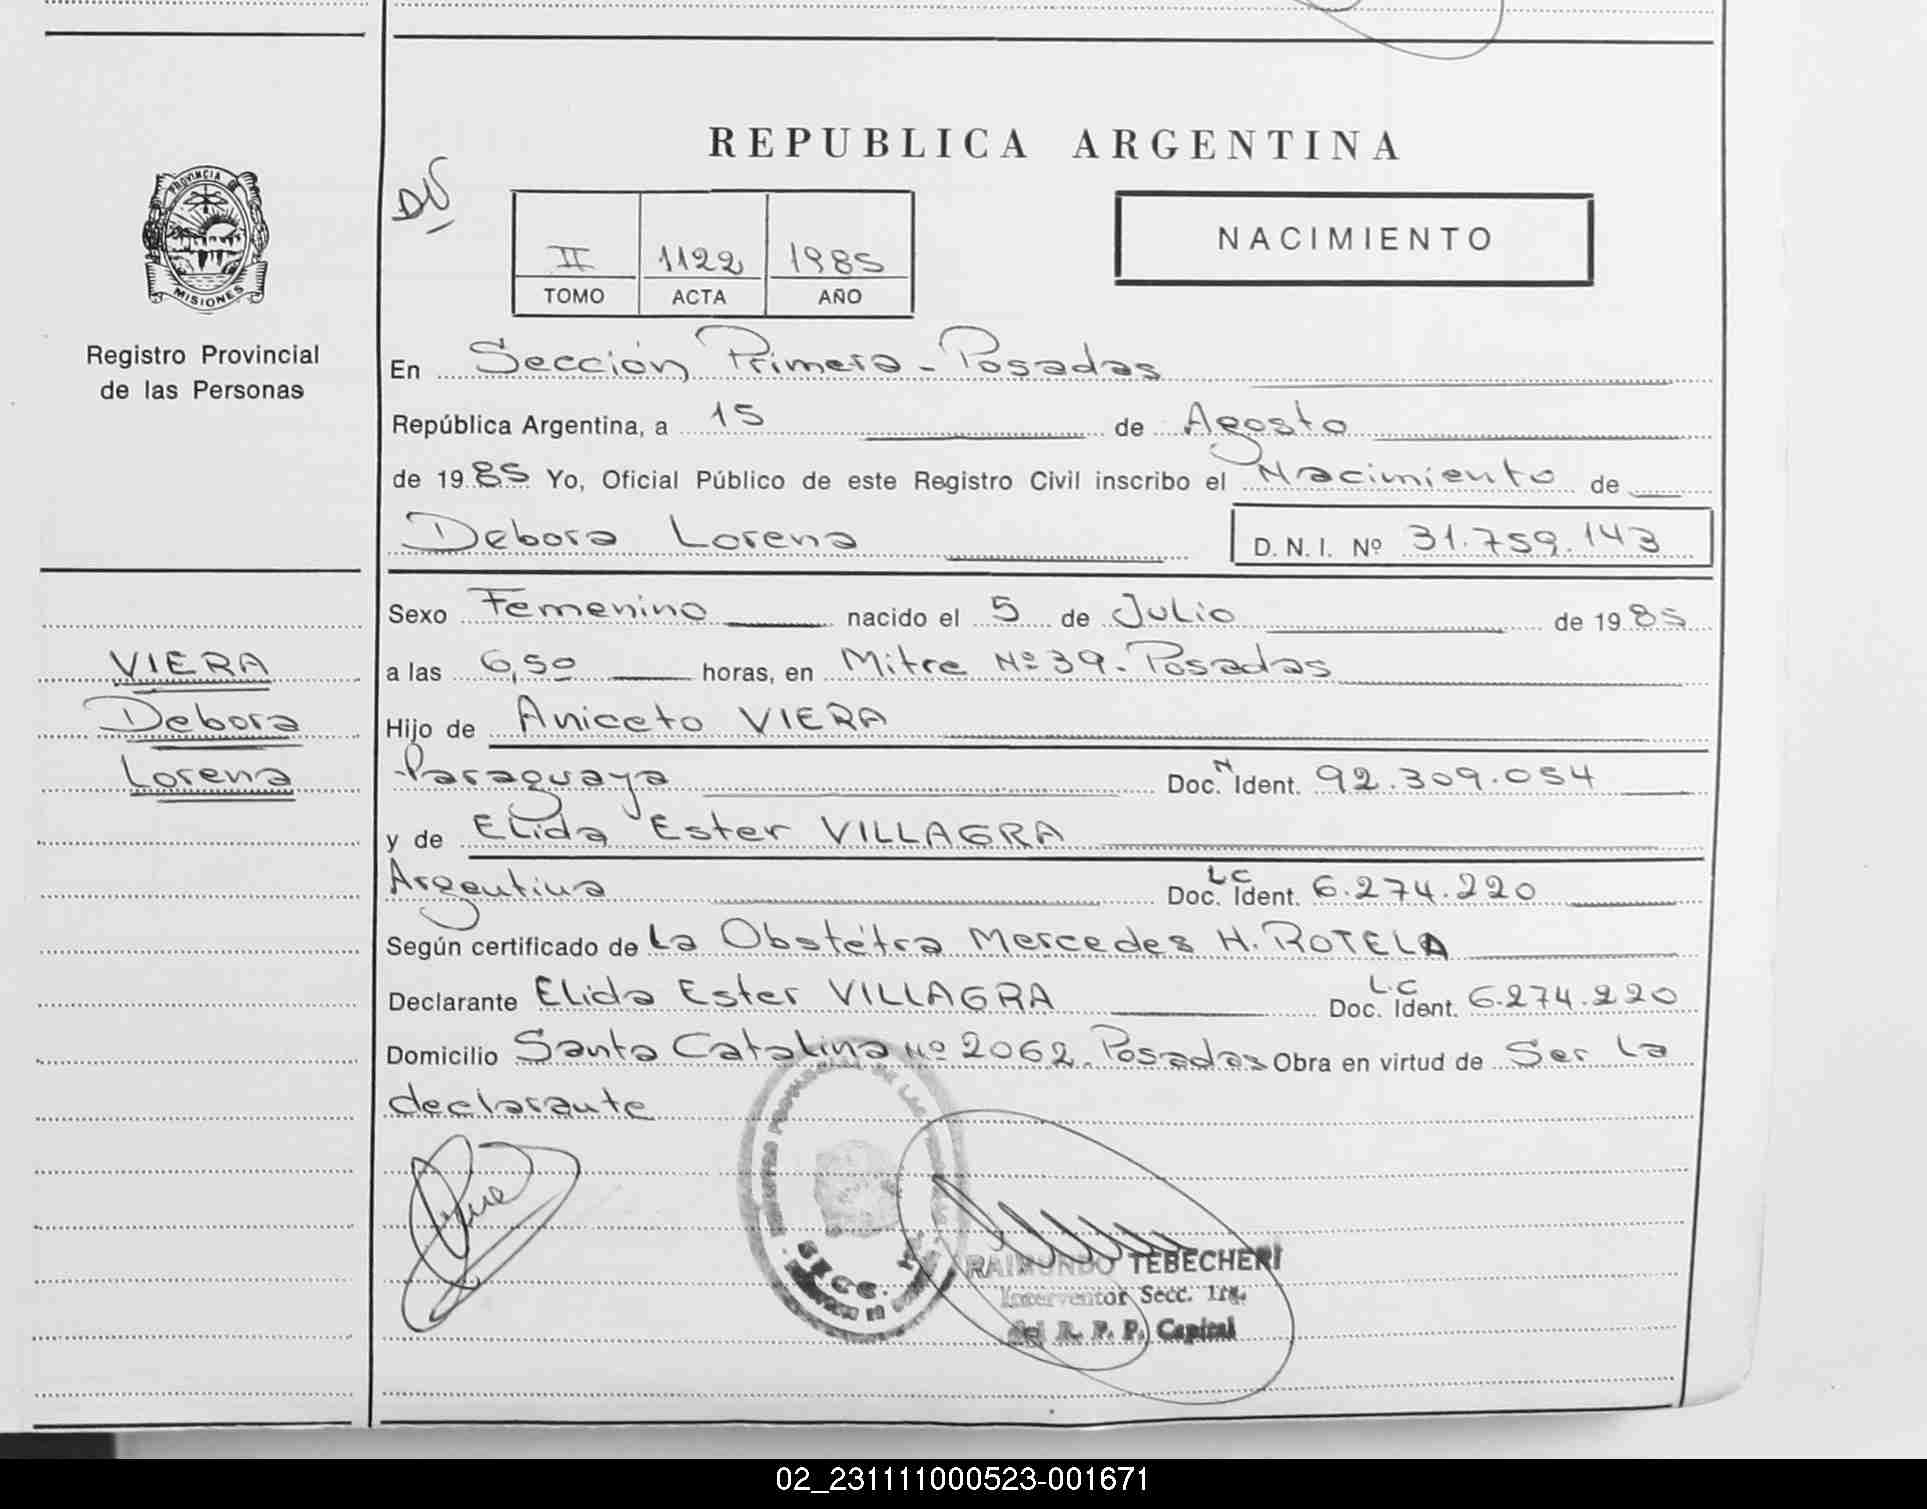 REPUBLICA ARGENTINA
PROVINCIA DE
MISIONES
Registro Provincial
de las Personas
NACIMIENTO
II 1122 1985
TOMO ACTA AÑO
En Sección Primera - Posadas
República Argentina, a 15 de Agosto
de 1985 Yo, Oficial Público de este Registro Civil inscribo el Nacimiento de
Debora Lorena D. N. I. Nº 31.759.143
Sexo Femenino nacido el 5 de Julio de 1985
VIERA
Debora
Lorena
a las 6,50 horas, en Mitre Nº 39 - Posadas
Hijo de Aniceto VIERA
Paraguaya Doc. N Ident. 92.309.054
y de Elida Ester VILLAGRA
Argentina Doc. LC Ident. 6.274.220
Según certificado de La Obstétra Mercedes H. ROTELA
Declarante Elida Ester VILLAGRA Doc. L.C Ident. 6.274.220
Domicilio Santa Catalina Nº 2062. Posadas Obra en virtud de Ser La
declarante
RAIMUNDO TEBECHERI
Interventor Secc. 1ra.
del R. P. P. Capital
02_231111000523-001671